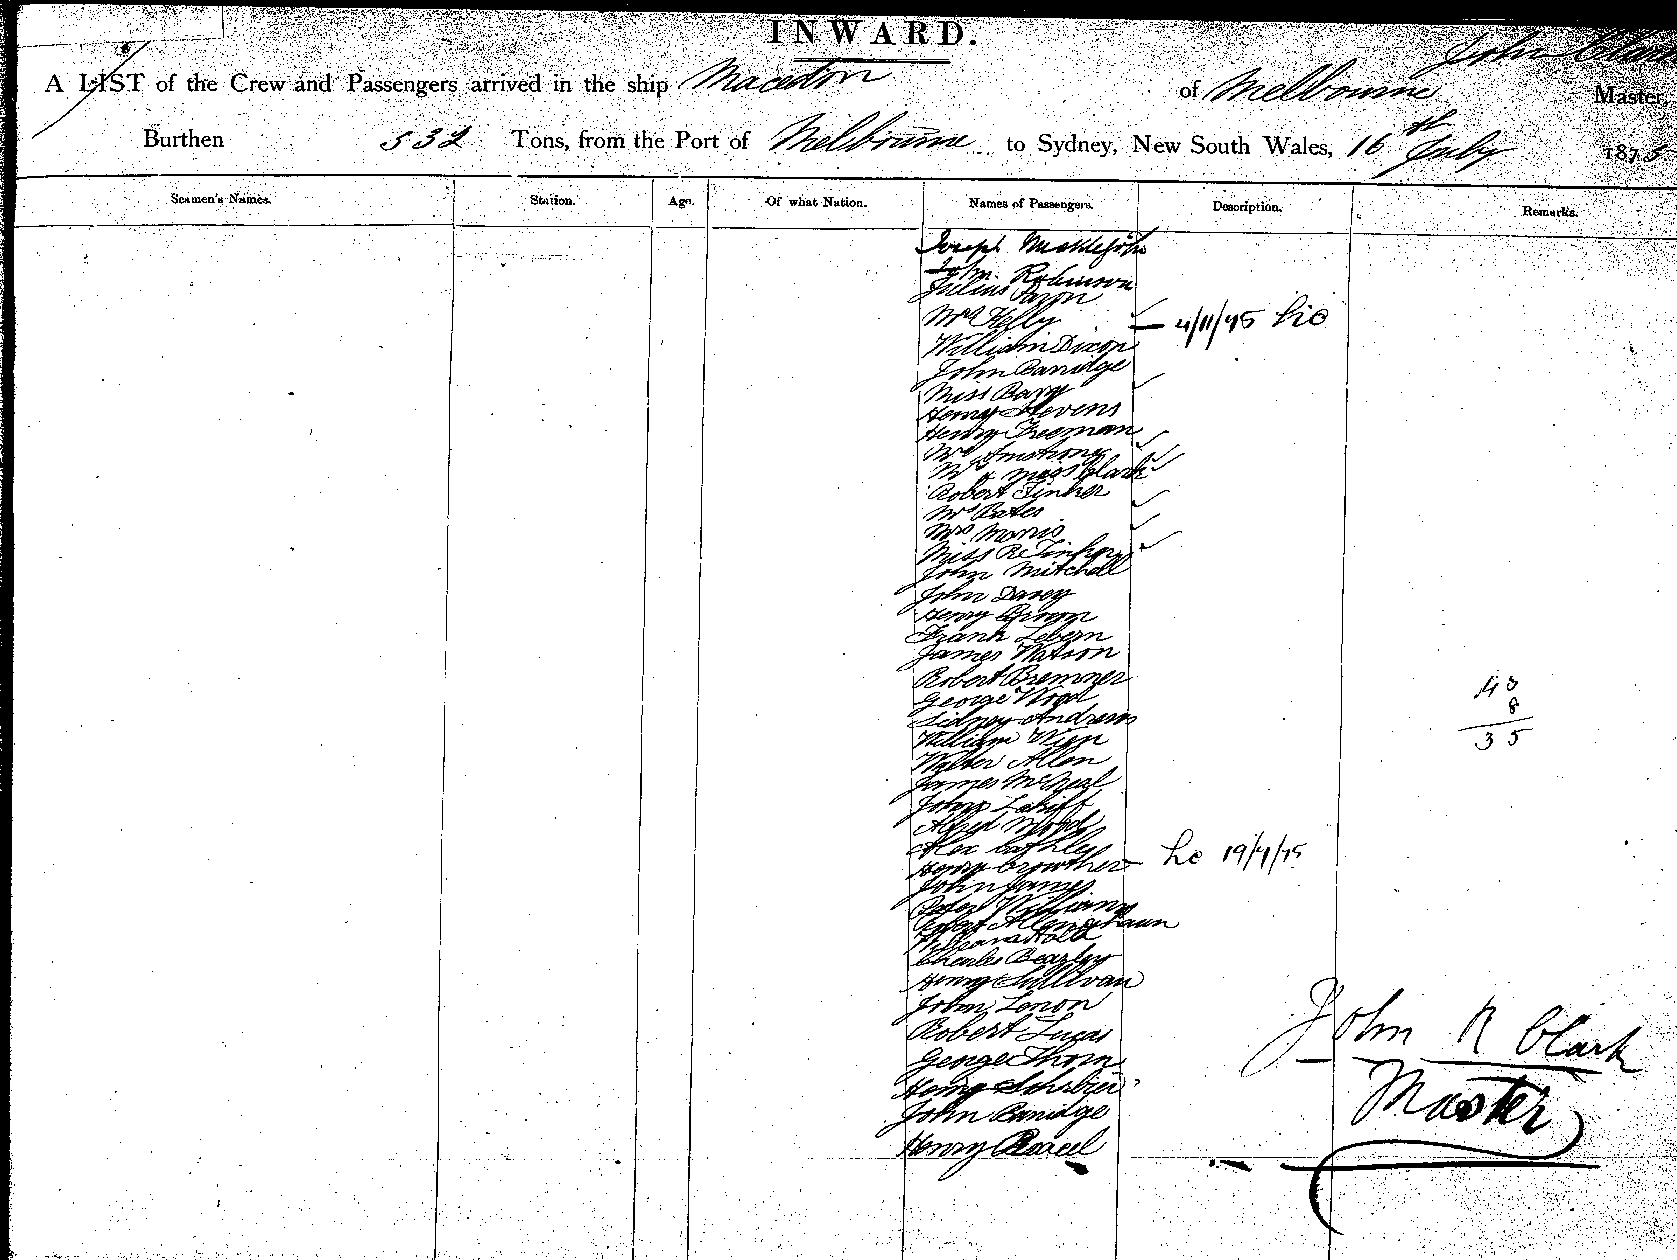 INWARD.
John Clark
A LIST of the Crew and Passengers arrived in the ship Macedon of Melbourne Master,
Burthen 532 Tons, from the Port of Melbourne to Sydney, New South Wales, 16th July 1875
Seamen's Names. Station. Age. Of what Nation. Names of Passengers. Description. Remarks.
Joseph
John Robinson
Julius
Mrs Kelly — 4/11/75
William Dixon
John Banidge
Miss Barry
Henry Stevens
Henry Freeman
Mrs Amstrong
& Miss Clark
Robert Tinker
Mrs Bates
Mrs Morris
Miss
John Mitchell
John Davey
Henry Groom
Frank Lebern
James Watson
Robert Bremner
George Wood
Sidney Andrews
William
Walter Allen
James McNeal
John
Alfred Wood
Alex
Henry Crowther — 19/7/75
John James
Peter Williams
Robert
William Holt
Charles Beazley
Henry Sullivan
John Lenon
Robert Lucas
George Thom
Henry
John Banidge
Henry
43
8
35
John R Clark
Master